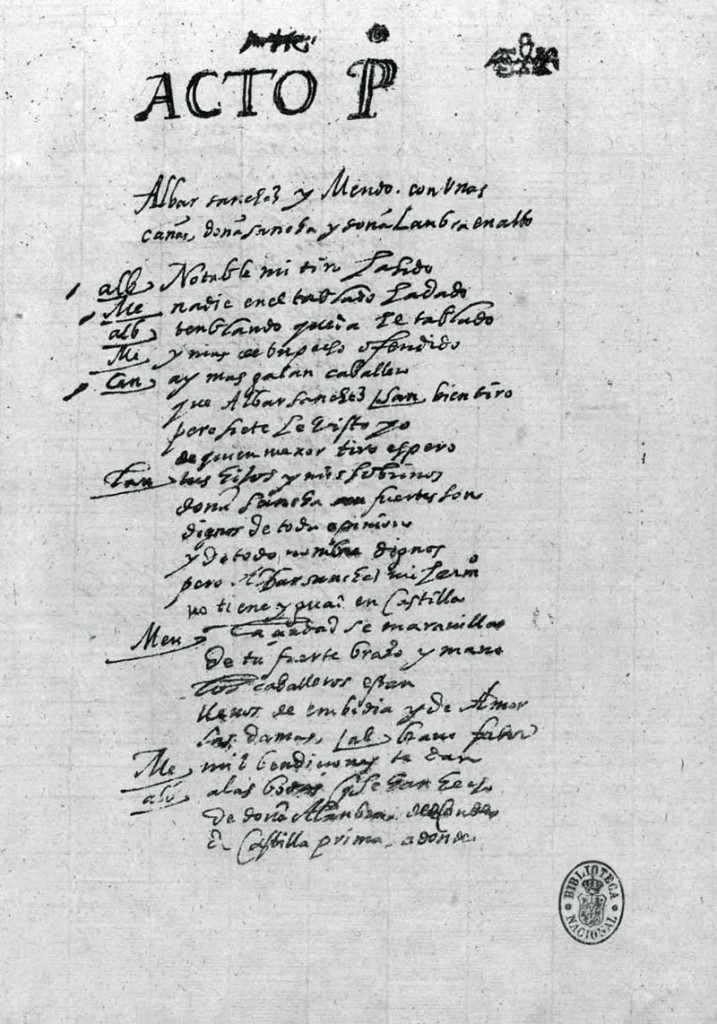 ACTO P
Albar sanchez y Mendo. con Unas
cañas, doña sancha y doña Lanbra en alto
alb Notable mi tiro ha sido
Me nadie en el tablado ha dado
alb tenblando queda el tablado
Me y mas de tu pecho ofendido
San ay mas galan caballero
que Albar sanchez Lan bien tiro
pero siete he visto yo
de quien mexor tiro espero
Lan tus hijos y mis sobrinos
doña sancha fuertes son
dignos de toda opinion
y de todo nombre dignos
pero Albar sanchez mi
no tiene ygual en Castilla
Men La ciudad se maravilla
de tu fuerte brazo y mano
Los caballeros estan
llenos de embidia y de Amor
Las damas, alb brauo fabor
Me mil bendiciones te dan
alb a las bodas que se han hecho
de doña Alanbra, del Conde
de Castilla prima, adonde
BIBLIOTECA NACIONAL